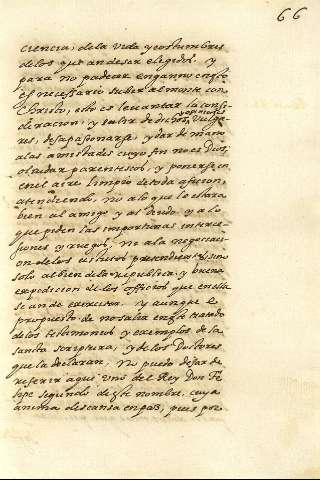 66
ciencia, de la vida y costumbres
de los que an de ser elegidos. y
para no padecer enganno en esto
es necessario subir al monte con
Christo, esto es levantar la consi-
deracion, y salir de dichos, y opiniones vulga-
res, desapasionarse, y dar de mano
a las amistades cuyo fin no es Dios,
olvidar parentescos, y ponerse en
en el aire limpio de toda aficion,
atendiendo, no a lo que le estara
bien al amigo y al deudo y a lo
que piden las importunas interce-
siones y ruegos, ni a la negociaci-
on de los astutos pretendientes sino
solo al bien de la republica, y buena
expedicion de los officios que en ella
se an de exercitar. y aunque es
proposito de no salir en este tratado
de los testimonios y exemplos de la
santa scriptura, y de los Doctores
que la declaran, no puedo dejar de
referir aqui uno del Rey Don Fe
lipe segundo de este nombre, cuya
anima descansa en paz, pues por